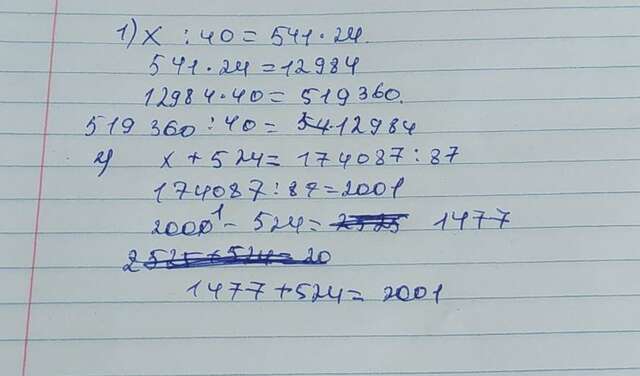 1) x : 40 = 541 · 24.
541 · 24 = 12984
12984 · 40 = 519 360.
519 360 : 40 = 12984
2) x + 524 = 174087 : 87
174087 : 87 = 2001
2001 - 524 = 2525 1477
2525 + 524 = 20
1477 + 524 = 2001